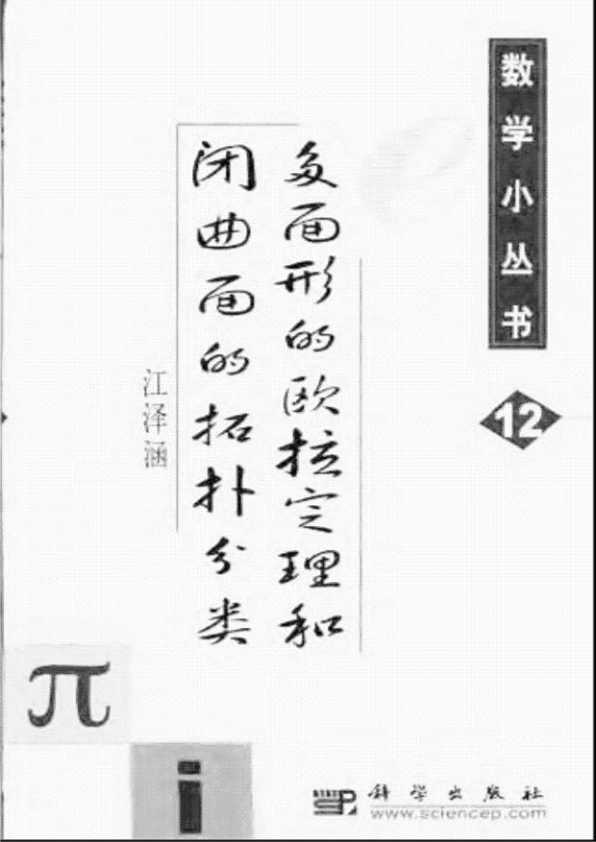 数学小丛书
12
多面形的欧拉定理和
闭曲面的拓扑分类
江泽涵
π
i
科学出版社
www.sciencep.com